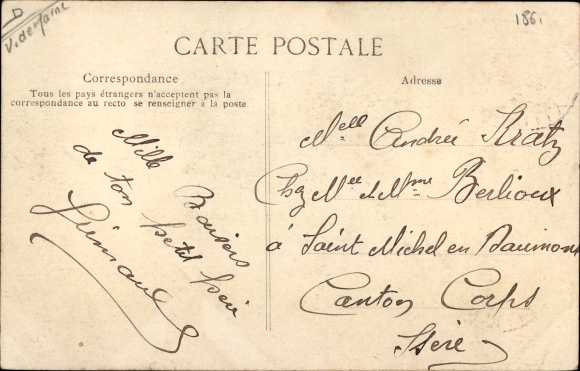 D
V. de marne
186.
CARTE POSTALE
Correspondance
Tous les pays étrangers n'acceptent pas la
correspondance au recto se renseigner à la poste
Mille Baisers
de ton petit
Adresse
Melle Andrée Kratz
Chez Mee et Mme Berlioux
à Saint Michel en Baumont
Canton Corps
Isère